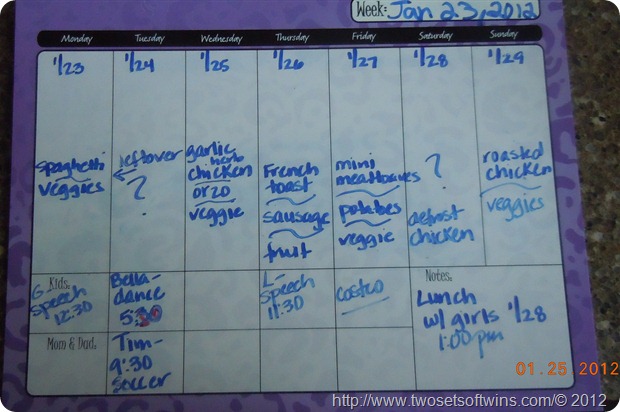 Week: Jan 23, 2012
Monday Tuesday Wednesday Thursday Friday Saturday Sunday
1/23 1/24 1/25 1/26 1/27 1/28 1/29
spaghetti
veggies
leftover
?
garlic
herb
chicken
orzo
veggie
French
toast
sausage
fruit
mini
meatloaves
potatoes
veggie
?
defrost
chicken
roasted
chicken
veggies
Kids:
G-
speech
12:30
Bella-
dance
5:30
L-
speech
11:30
Costco
Notes:
Lunch
w/ girls 1/28
1:00 pm
Mom & Dad:
Tim-
9:30
soccer
01.25 2012
http://www.twosetsoftwins.com/© 2012